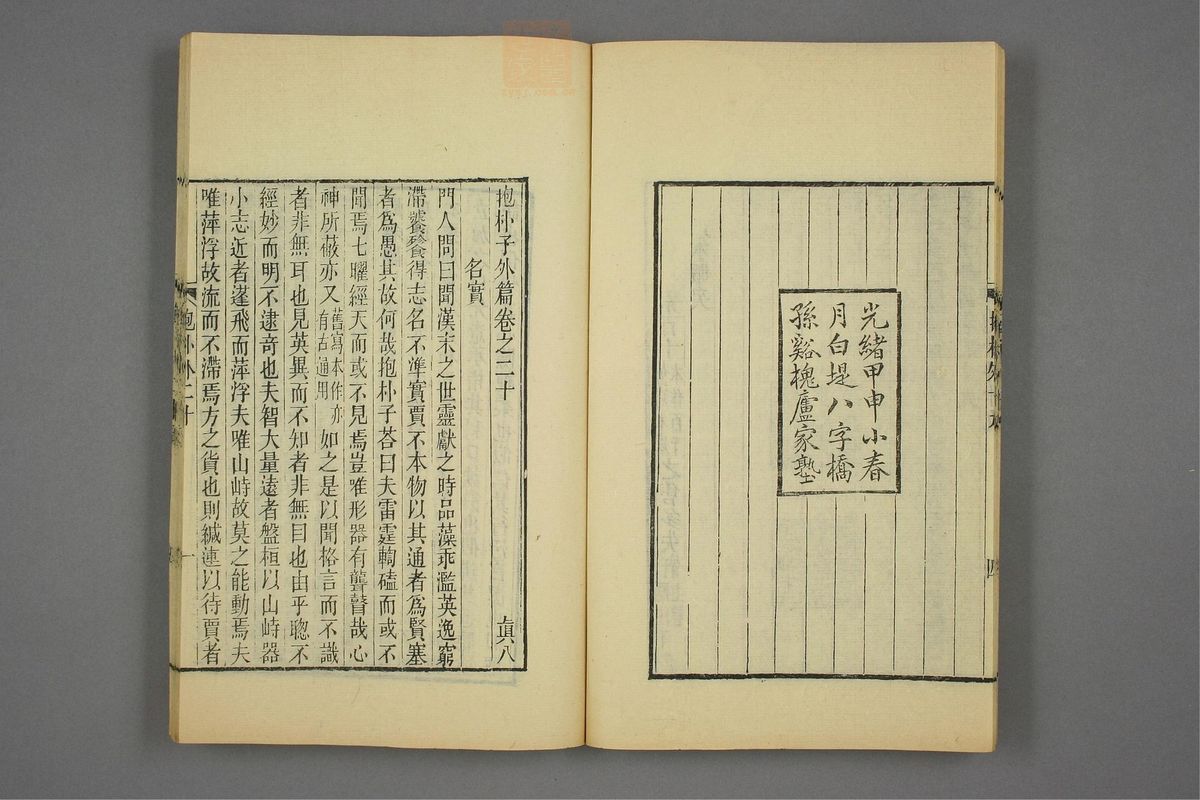 光緒甲申小春
月白堤八字橋
孫谿槐廬家塾
四
抱朴子外篇卷之二十
眞八
名實
門人問曰聞漢末之世靈獻之時品藻乖濫英逸窮
滯饕餮得志名不準實賈不本物以其通者爲賢塞
者爲愚其故何哉抱朴子荅曰夫雷霆輷磕而或不
聞焉七曜經天而或不見焉豈唯形器有聾瞽哉心
神所蔽亦又舊寫本作亦有古通用如之是以聞格言而不識
者非無耳也見英異而不知者非無目也由乎聦不
經妙而明不逮奇也夫智大量遠者盤桓以山峙器
小志近者蓬飛而萍浮夫唯山峙故莫之能動焉夫
唯萍浮故流而不滯焉方之貨也則緘連以待賈者
抱朴外二十
一